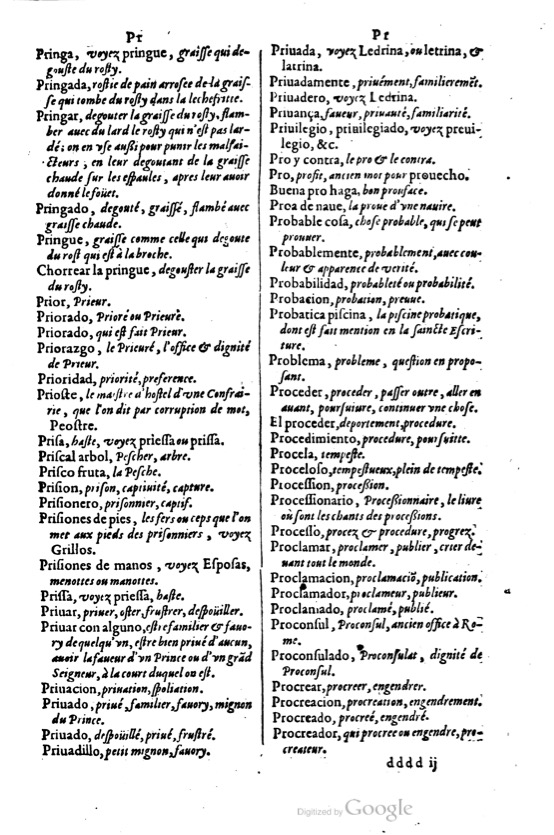 Pr
Pringa, voyez pringue, graisse qui de-
gouste du rosty.
Pringada, rostie de pain arrosee de la graiſ-
ſe qui tombe du roſty dans la lechefritte.
Pringar, degouter la graiſſe du roſty, flam-
ber auec du lard le roſty qui n'eſt pas lar-
dé; on en vſe auſsi pour punir les malfai-
cteurs, en leur degoutans de la graiſſe
chaude ſur les eſpaules, apres leur auoir
donné le foüet.
Pringado, degouté, graiſſé, flambé auec
graiſſe chaude.
Pringue, graiſſe comme celle qui degoute
du roſt qui eſt à la broche.
Chorrear la pringue, degouſter la graiſſe
du roſty.
Prior, Prieur.
Priorado, Prioré ou Prieuré.
Priorado, qui eſt fait Prieur.
Priorazgo, le Prieuré, l'office & dignité
de Prieur.
Prioridad, priorité, preference.
Prioſte, le maiſtre d'hoſtel d'vne Confrai-
rie, que l'on dit par corruption de mot,
Peoſtre.
Priſa, haſte, voyez prieſſa ou priſſa.
Priſcal arbol, Peſcher, arbre.
Priſco fruta, la Peſche.
Priſion, priſon, captiuité, capture.
Priſionero, priſonnier, captif.
Priſiones de pies, les fers ou ceps que l'on
met aux pieds des priſonniers, voyez
Grillos.
Priſiones de manos, voyez Eſpoſas,
menottes ou manottes.
Priſſa, voyez prieſſa, haſte.
Priuar, priuer, oſter, fruſtrer, deſpoüiller.
Priuar con alguno, eſtre familier & fauo-
ry de quelqu'vn, eſtre bien priué d'aucun,
auoir la faueur d'vn Prince ou d'vn grãd
Seigneur, à la court duquel on eſt.
Priuacion, priuation, ſpoliation.
Priuado, priué, familier, fauory, mignon
du Prince.
Priuado, deſpoüillé, priué, fruſtré.
Priuadillo, petit mignon, fauory.
Pr
Priuada, voyez Ledrina, ou letrina, &
latrina.
Priuadamente, priuément, familieremẽt.
Priuadero, voyez Ledrina.
Priuança, faueur, priuauté, familiarité.
Priuilegio, priuilegiado, voyez preui-
legio, &c.
Pro y contra, le pro & le contra.
Pro, profit, ancien mot pour prouecho.
Buena pro haga, bon prouface.
Proa de naue, la proue d'vne nauire.
Probable coſa, choſe probable, qui ſe peut
prouuer.
Probablemente, probablement, auec cou-
leur & apparence de verité.
Probabilidad, probableté ou probabilité.
Probacion, probation, preuue.
Probatica piſcina, la piſcine probatique,
dont eſt fait mention en la ſaincte Eſcri-
ture.
Problema, probleme, queſtion en propo-
ſant.
Proceder, proceder, paſſer outre, aller en
auant, pourſuiure, continuer vne choſe.
El proceder, deportement, procedure.
Procedimiento, procedure, pourſuitte.
Procela, tempeſte.
Proceloſo, tempeſtueux, plein de tempeſte.
Proceſſion, proceſsion.
Proceſſionario, Proceſsionnaire, le liure
où ſont les chants des proceſsions.
Proceſſo, procez & procedure, progrez.
Proclamar, proclamer, publier, crier de-
uant tout le monde.
Proclamacion, proclamació, publication.
Proclamador, proclameur, publieur.
Proclamado, proclamé, publié.
Proconſul, Proconſul, ancien office à Ro-
me.
Proconſulado, Proconſulat, dignité de
Proconſul.
Procrear, procreer, engendrer.
Procreacion, procreation, engendrement.
Procreado, procreé, engendré.
Procreador, qui procree ou engendre, pro-
createur.
dddd ij
Digitized by Google